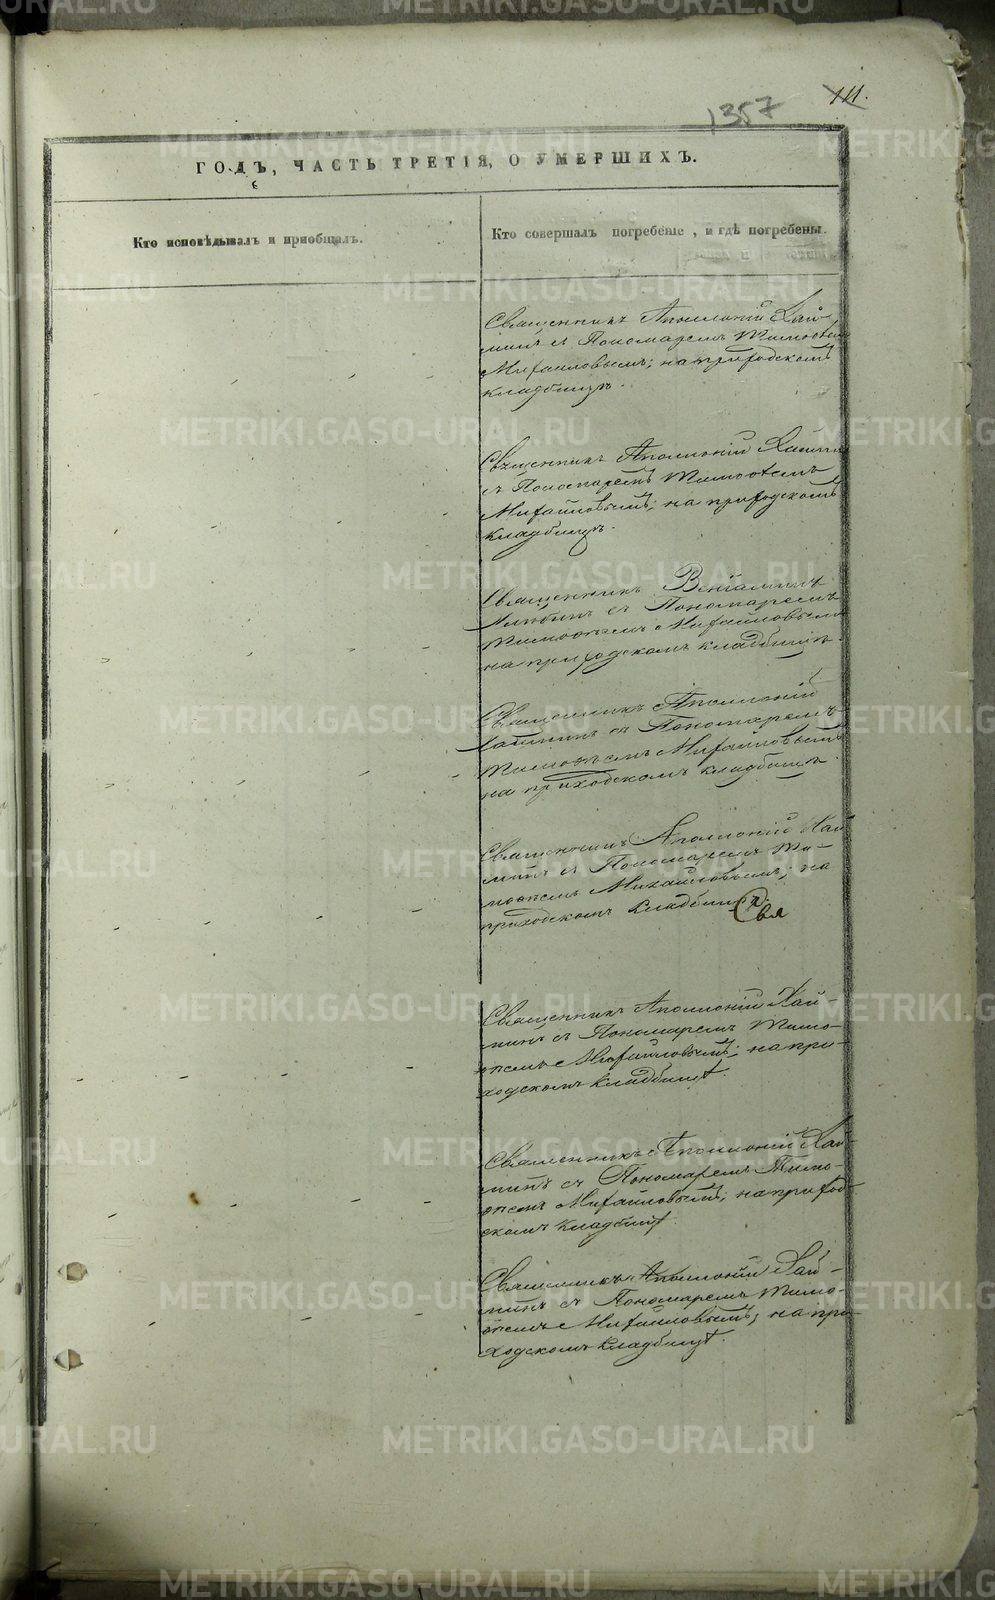 1357
111.
ГОДЪ, ЧАСТЬ ТРЕТІЯ, О УМЕРШИХЪ.
Кто исповѣдывалъ и пріобщалъ.
Кто совершалъ погребеніе, и гдѣ погребены.
Священникъ Аполлоній Хай-
минъ съ Пономаремъ Тимоѳеемъ
Михайловымъ; на приходскомъ
кладбищѣ.
Священникъ Аполлоній Хайминъ
съ Пономаремъ Тимоѳеемъ
Михайловымъ; на приходскомъ
кладбищѣ.
Священникъ Веніаминъ
съ Пономаремъ
Тимоѳеемъ Михайловымъ
на приходскомъ кладбищѣ.
Священникъ Аполлоній
Хайминъ съ Пономаремъ
Тимоѳеемъ Михайловымъ
на приходскомъ кладбищѣ.
Священникъ Аполлоній Хай
минъ съ Пономаремъ Ти-
моѳеемъ Михайловымъ; на
приходскомъ кладбищѣ.
Свя
Священникъ Аполлоній Хай-
минъ съ Пономаремъ Тимо-
ѳеемъ Михайловымъ; на при-
ходскомъ кладбищѣ.
Священникъ Аполлоній Хай-
минъ съ Пономаремъ Тимо-
ѳеемъ Михайловымъ; на приход
скомъ кладбищѣ.
Священникъ Аполлоній Хай-
минъ съ Пономаремъ Тимо-
ѳеемъ Михайловымъ; на при-
ходскомъ кладбищѣ.
METRIKI.GASO-URAL.RU